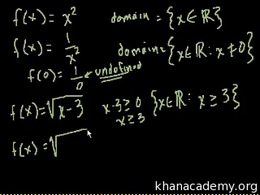 f(x) = x² domain = {x∈ℝ}
f(x) = 1/x² domain = {x∈ℝ: x≠0}
f(0) = 1/0 ← undefined
f(x) = √(x-3) x-3≥0 {x∈ℝ: x≥3}
x≥3
f(x) = √
khanacademy.org